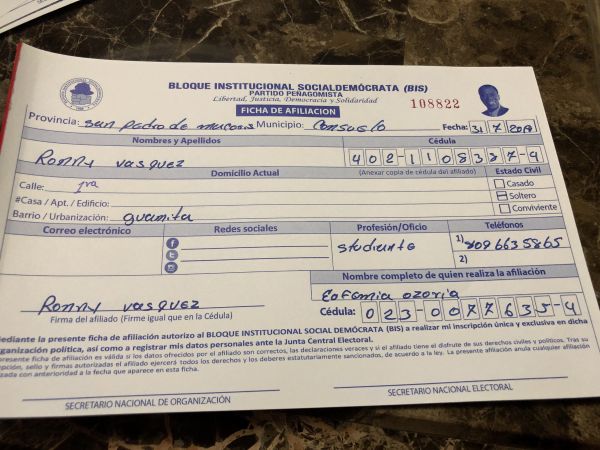 BLOQUE INSTITUCIONAL SOCIALDEMÓCRATA (BIS)
PARTIDO PEÑAGOMISTA
Libertad, Justicia, Democracia y Solidaridad
108822
FICHA DE AFILIACION
Provincia: san pedro de macoris Municipio: consuelo Fecha: 31 7 2019
Nombres y Apellidos Cédula
Ronny vasquez 402-1108387-4
Domicilio Actual (Anexar copia de cédula del afiliado) Estado Civil
Calle: 1ra Casado
#Casa / Apt. / Edificio: Soltero
Barrio / Urbanización: guamita Conviviente
Correo electrónico Redes sociales Profesión/Oficio Teléfonos
studiante 1) 809 6635865
2)
Nombre completo de quien realiza la afiliación
Eofemia ozoria
Ronny vasquez Cédula: 023-0077635-4
Firma del afiliado (Firme igual que en la Cédula)
Mediante la presente ficha de afiliación autorizo al BLOQUE INSTITUCIONAL SOCIAL DEMÓCRATA (BIS) a realizar mi inscripción única y exclusiva en dicha
organización política, así como a registrar mis datos personales ante la Junta Central Electoral.
presente ficha de afiliación es válida si los datos ofrecidos por el afiliado son correctos, las declaraciones veraces y si el afiliado tiene el disfrute de sus derechos civiles y políticos. Tras su
pción, sello y firmas autorizadas el afiliado ejercerá todos los derechos y los deberes estatutariamente sancionados, de acuerdo a la ley. La presente afiliación anula cualquier afiliación
izada con anterioridad a la fecha que aparece en esta ficha.
SECRETARIO NACIONAL DE ORGANIZACIÓN SECRETARIO NACIONAL ELECTORAL